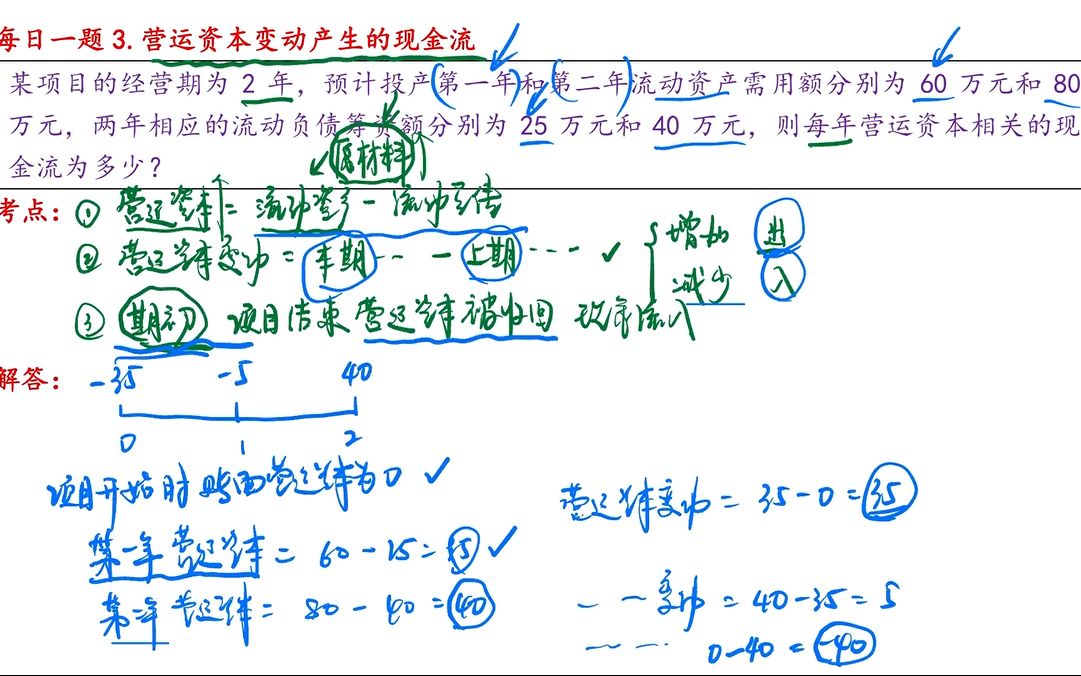 每日一题 3.营运资本变动产生的现金流
某项目的经营期为 2 年，预计投产第一年和第二年流动资产需用额分别为 60 万元和 80
万元，两年相应的流动负债筹资额分别为 25 万元和 40 万元，则每年营运资本相关的现
金流为多少？
原材料
考点：① 营运资本↑= 流动资产 - 流动负债
② 营运资本变动 = 本期… - 上期…
增加 出
减少 入
③ 期初 项目结束 营运资本被收回 现金流入
解答： -35 -5 40
0 1 2
项目开始时账面营运资本为0
营运资本变动 = 35-0=35
第一年营运资本 = 60-25=35
第二年营运资本 = 80-40=40
变动 = 40-35=5
0-40=-40